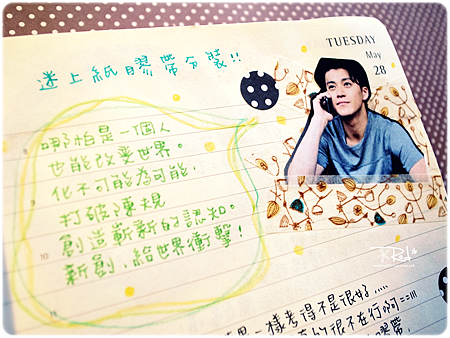 迷上紙膠帶分裝!!
TUESDAY
May
28
哪怕是一個人
也能改變世界。
化不可能為可能,
打破陳規
創造嶄新的認知。
新創,給世界衝擊!
8
9
10
一樣考得不是很好.....
很不在行啊==!!!
膠帶,